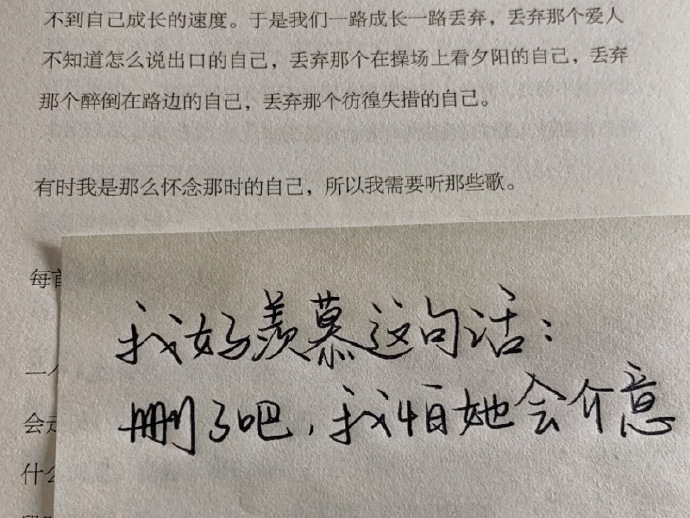 不到自己成长的速度。于是我们一路成长一路丢弃，丢弃那个爱人
不知道怎么说出口的自己，丢弃那个在操场上看夕阳的自己，丢弃
那个醉倒在路边的自己，丢弃那个彷徨失措的自己。
有时我是那么怀念那时的自己，所以我需要听那些歌。
每首
我好羡慕这句话：
删了吧，我怕她会介意
二人
会走
什么